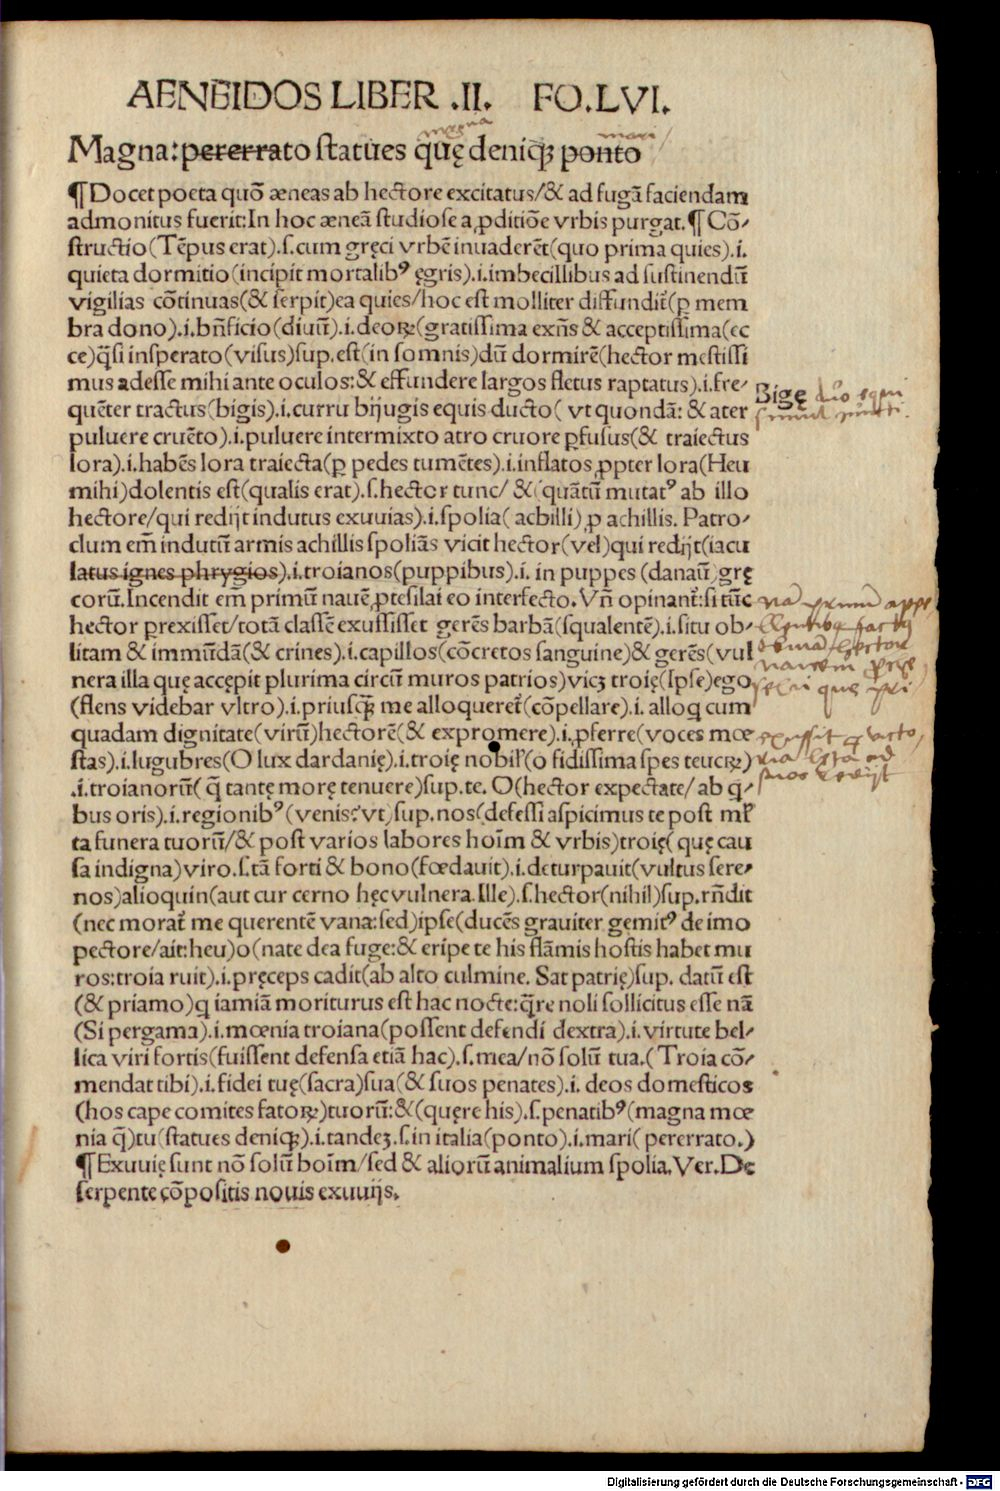 AENEIDOS LIBER .II. FO.LVI.
magna mari
Magna: pererrato statues quę deniqꝫ ponto
¶ Docet poeta quõ æneas ab hectore excitatus/& ad fugã faciendam
admonitus fuerit: In hoc æneã studiose a ꝓditiõe vrbis purgat. ¶ Cõ-
structio (Tẽpus erat).s. cum gręci vrbẽ inuaderẽt (quo prima quies).i.
quieta dormitio (incipit mortalibꝰ ęgris).i. imbecillibus ad sustinendũ
vigilias cõtinuas (& serpit) ea quies/hoc est molliter diffundit᷑ (ꝑ mem
bra dono).i. bñficio (diuũ).i. deoꝝ (gratissima exñs & acceptissima (ec
ce) q̃si insperato (visus) sup. est (in somnis) dũ dormirẽ (hector mestissi
mus adesse mihi ante oculos: & effundere largos fletus raptatus).i. fre-
quẽter tractus (bigis).i. curru bijugis equis ducto ( vt quondã: & ater
puluere cruẽto).i. puluere intermixto atro cruore ꝑfusus (& traiectus
lora).i. habẽs lora traiecta (ꝑ pedes tumẽtes).i. inflatos ꝓpter lora (Heu
mihi) dolentis est (qualis erat).s. hector tunc/ & (quãtũ mutatꝰ ab illo
hectore/qui redijt indutus exuuias).i. spolia ( achilli) ꝓ achillis. Patro-
clum em̃ indutũ armis achillis spoliãs vicit hector (vel) qui redijt (iacu
latus ignes phrygios).i. troianos (puppibus).i. in puppes (danaũ) grę
corũ. Incendit em̃ primũ nauẽ ꝓtesilai eo interfecto. Vñ opinant᷑: si tũc
hector ꝑrexisset/totã classẽ exussisset gerẽs barbã (squalentẽ).i. situ ob-
litam & immũdã (& crines).i. capillos (cõcretos sanguine) & gerẽs (vul
nera illa quę accępit plurima circũ muros patrios) vicꝫ troię (Ipse) ego
(flens videbar vltro).i. priusqꝫ̃ me alloqueret᷑ (cõpellare).i. alloq̇ cum
quadam dignitate (virũ) hectorẽ (& expromere).i. ꝓferre (voces mœ
stas).i. lugubres (O lux dardanię).i. troię nobil᷑ (o fidissima spes teucꝝ)
.i. troianorũ ( q̃ tantę morę tenuere) sup. te. O (hector expectate/ ab q̇-
bus oris).i. regionibꝰ (venis: vt) sup. nos (defessi aspicimus te post ml᷑
ta funera tuorũ/& post varios labores hoĩm & vrbis) troię ( quę cau
sa indigna) viro.s. tã forti & bono (fœdauit).i. deturpauit (vultus sere-
nos) alioquin (aut cur cerno hęc vulnera. Ille).s. hector (nihil) sup. rñdit
(nec morat᷑ me querentẽ vana: sed) ipse (ducẽs grauiter gemitꝰ de imo
pectore/ait: heu) o (nate dea fuge: & eripe te his flãmis hostis habet mu
ros: troia ruit).i. pręceps cadit (ab alto culmine. Sat patrię) sup. datũ est
(& priamo) q iamiã moriturus est hac nocte: q̃re noli sollicitus esse nã
(Si pergama).i. mœnia troiana (possent defendi dextra).i. virtute bel-
lica viri fortis (fuissent defensa etiã hac).s. mea/nõ solũ tua. ( Troia cõ-
mendat tibi).i. fidei tuę (sacra) sua (& suos penates).i. deos domesticos
(hos cape comites fatoꝝ) tuorũ: & (quęre his).s. penatibꝰ (magna mœ
nia q̃) tu (statues deniqꝫ).i. tandeꝫ.s. in italia (ponto).i. mari ( pererrato.)
¶ Exuuię sunt nõ solũ hoĩm/sed & aliorũ animalium spolia. Ver. De
serpente cõpositis nouis exuuijs.
Bigę duo equi
simul iuncti.